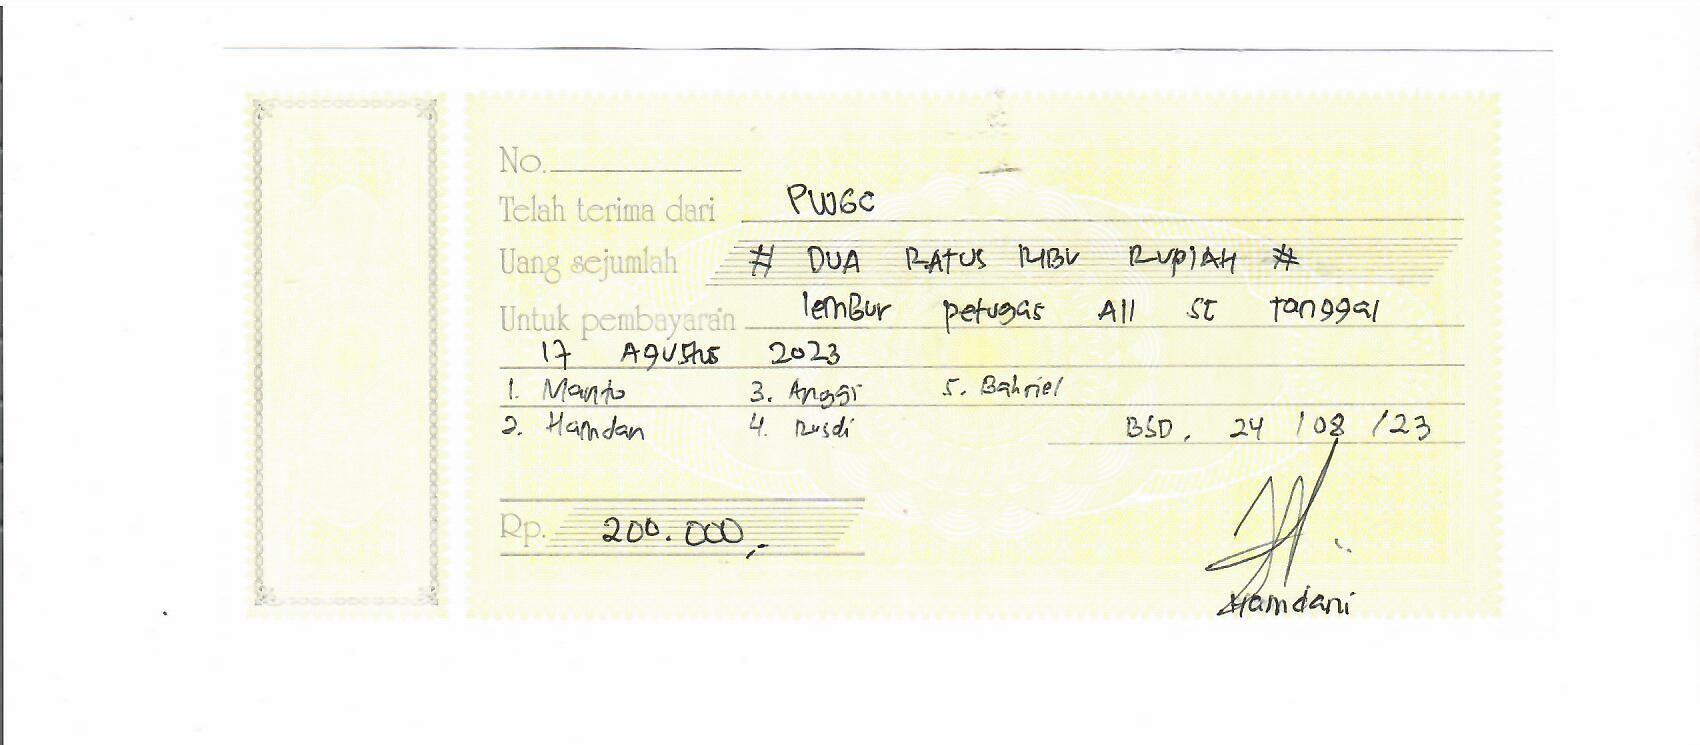 No.
Telah terima dari PWGC
Uang sejumlah # DUA RATUS RIBU RUPIAH #
Untuk pembayaran lemBur petugas All ST Tanggal
17 Agustus 2023
1. Manto 3. Anggi 5. Bahriel
2. Hamdan 4. Rusdi BSD, 24 /08 /23
Rp. 200.000,-
Hamdani